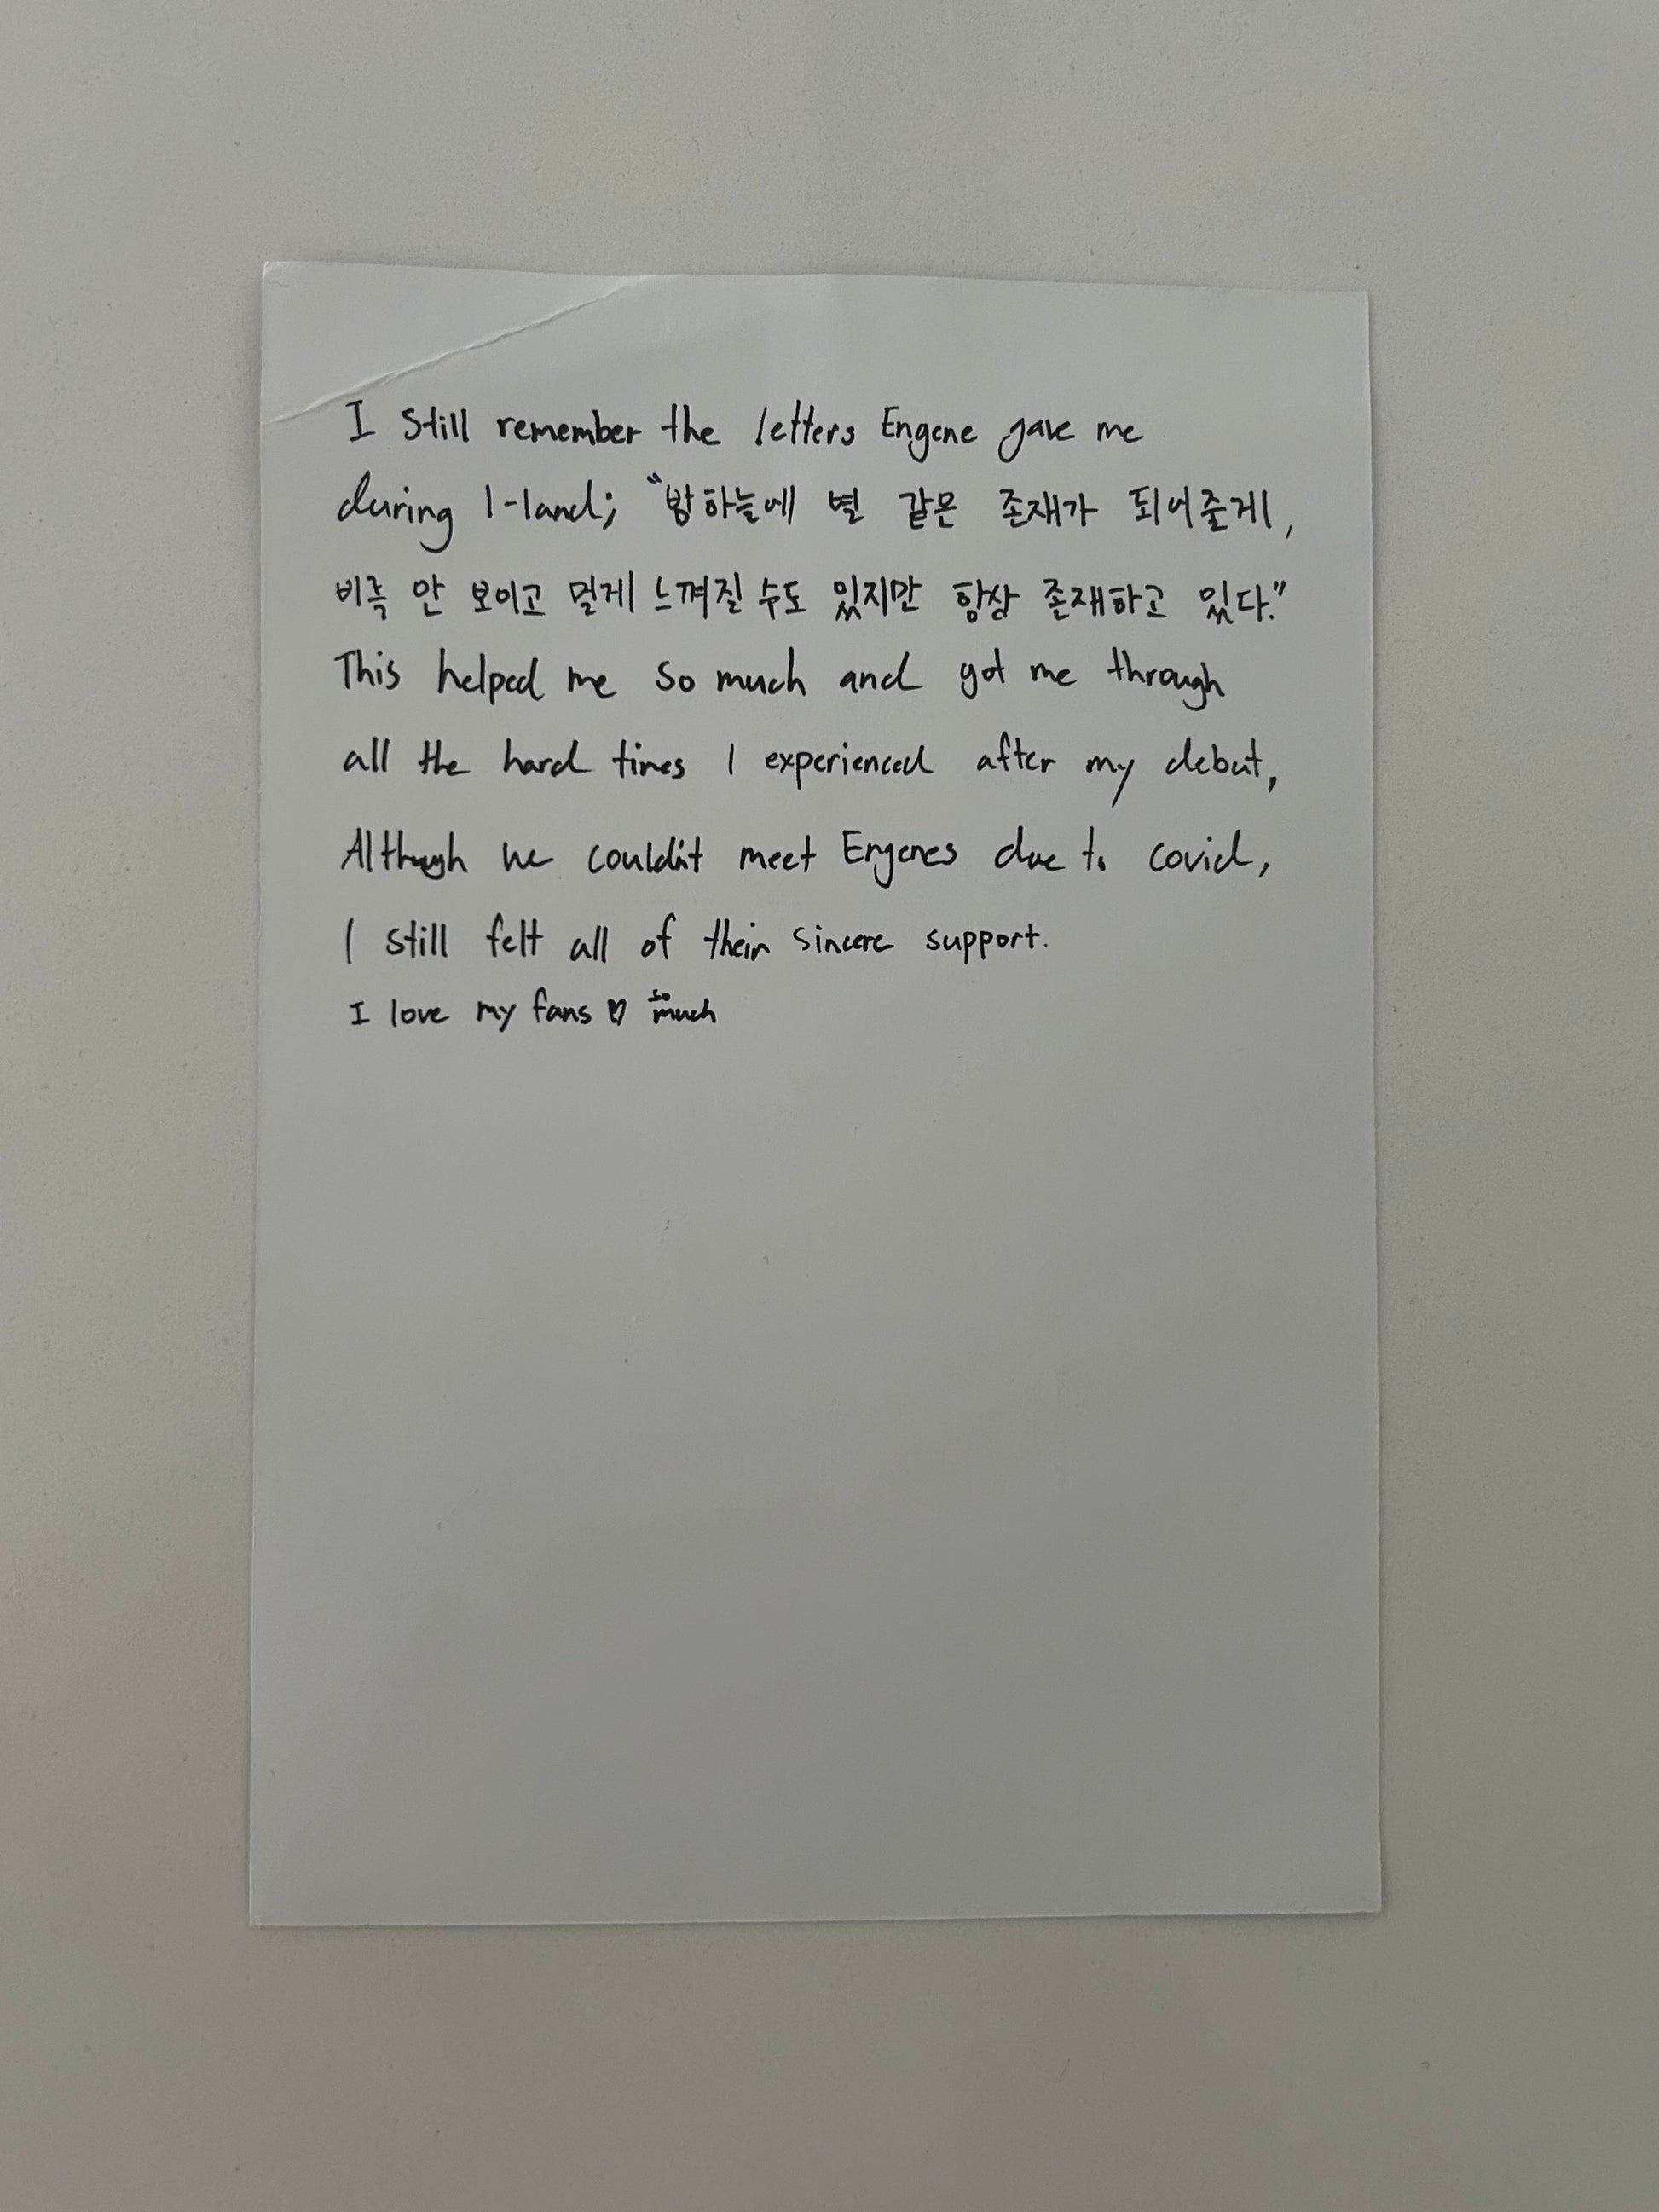 I still remember the letters Engene gave me
during I-land; "밤하늘에 별 같은 존재가 되어줄게,
비록 안 보이고 멀게 느껴질 수도 있지만 항상 존재하고 있다."
This helped me so much and got me through
all the hard times I experienced after my debut,
Although we couldn't meet Engenes due to covid,
I still felt all of their sincere support.
I love my fans ♡ so much